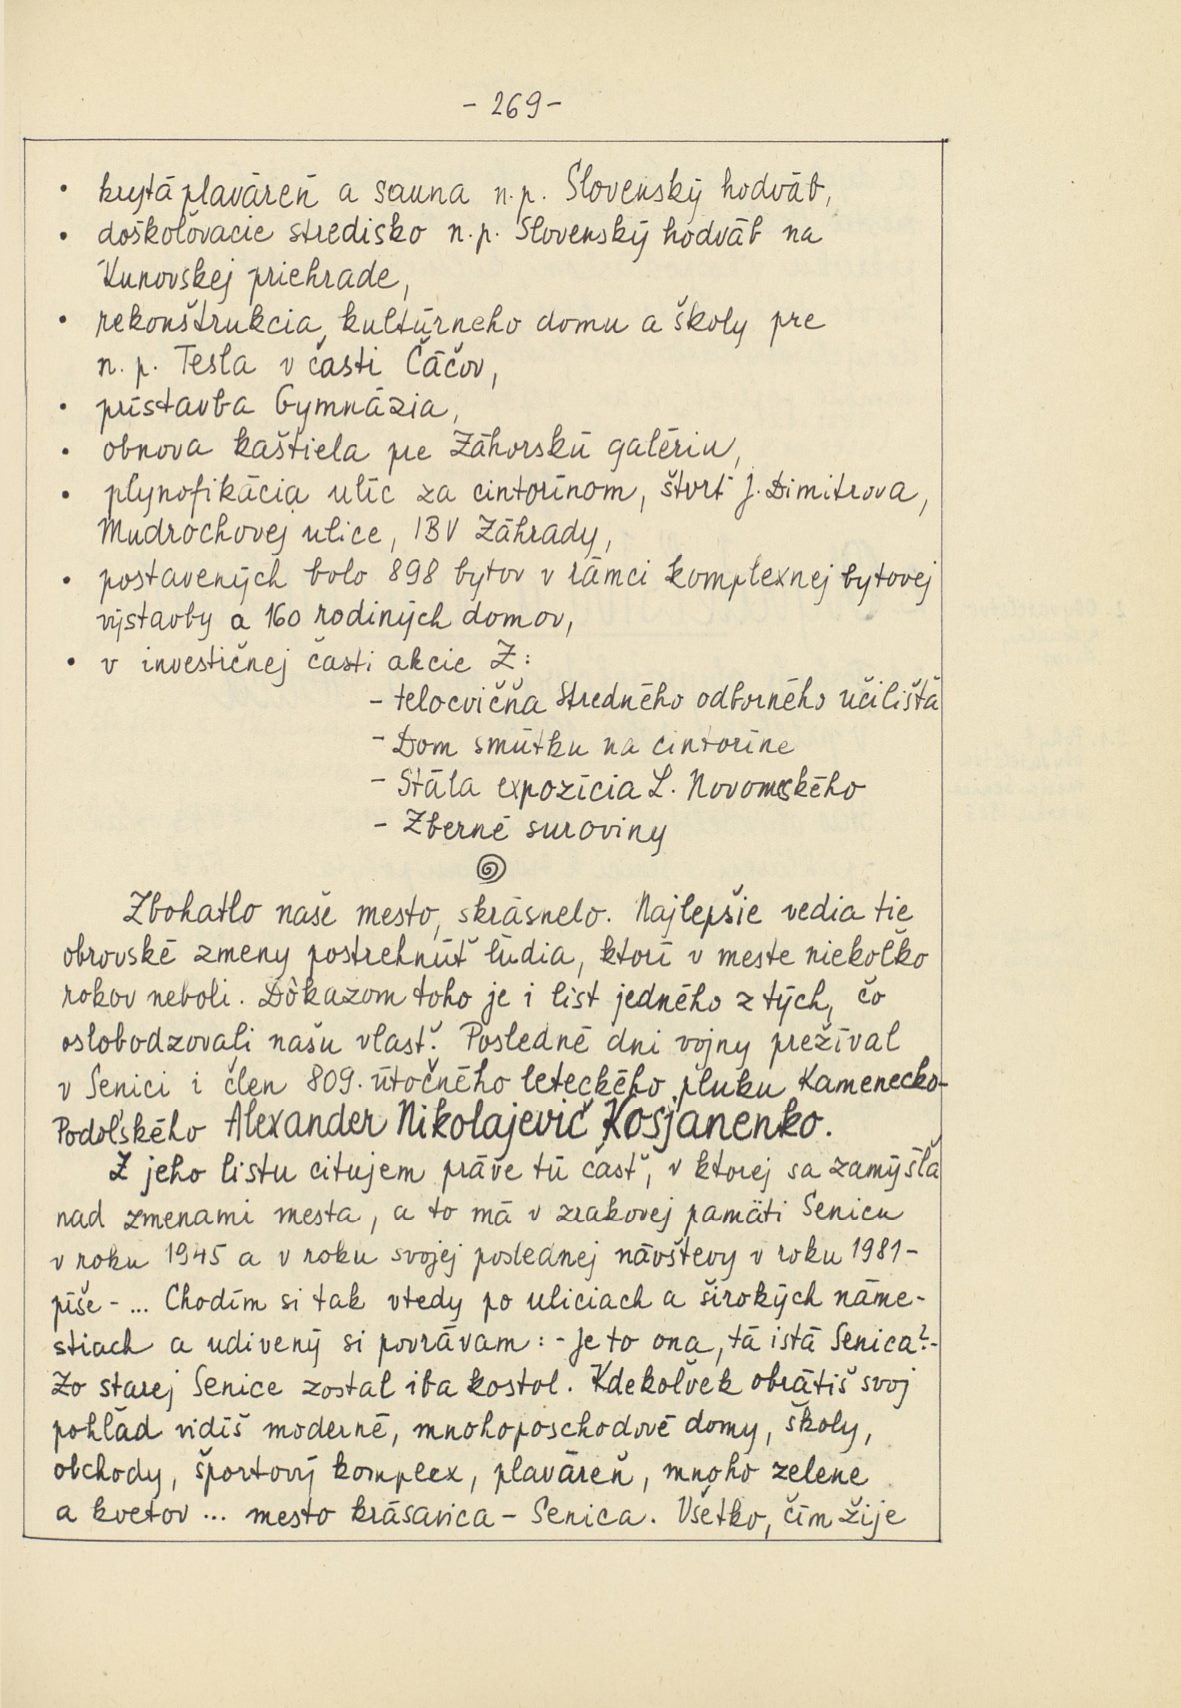 - 269 -
• krytá plaváreň a sauna n.p. Slovenský hodváb,
• doškoľovacie stredisko n.p. Slovenský hodváb na
Kunovskej priehrade,
• rekonštrukcia kultúrneho domu a školy pre
n. p. Tesla v časti Čáčov,
• prístavba Gymnázia,
• obnova kaštieľa pre Záhorskú galériu,
• plynofikácia ulíc za cintorínom, štvrť J. Dimitrova,
Mudrochovej ulice, IBV Záhrady,
• postavených bolo 898 bytov v rámci komplexnej bytovej
výstavby a 160 rodiných domov,
• v investičnej časti akcie Z:
- telocvičňa Stredného odborného učilišťa
- Dom smútku na cintoríne
- Stála expozícia L. Novomeského
- Zberné suroviny
Zbohatlo naše mesto, skrásnelo. Najlepšie vedia tie
obrovské zmeny postrehnúť ľudia, ktorí v meste niekoľko
rokov neboli. Dôkazom toho je i list jedného z tých, čo
oslobodzovali našu vlasť. Posledné dni vojny prežíval
v Senici i člen 809. útočného leteckého pluku Kamenecko-
Podoľského Alexander Nikolajevič Kosjanenko.
Z jeho listu citujem práve tú časť, v ktorej sa zamýšľa
nad zmenami mesta, a to má v zrakovej pamäti Senicu
v roku 1945 a v roku svojej poslednej návštevy v roku 1981 -
píše - ... Chodím si tak vtedy po uliciach a širokých náme-
stiach a udivený si povrávam: - Je to ona, tá istá Senica? -
Zo starej Senice zostal iba kostol. Kdekoľvek obrátiš svoj
pohľad vidíš moderné, mnohoposchodové domy, školy,
obchody, športový komplex, plaváreň, mnoho zelene
a kvetov ... mesto krásavica - Senica. Všetko, čím žije